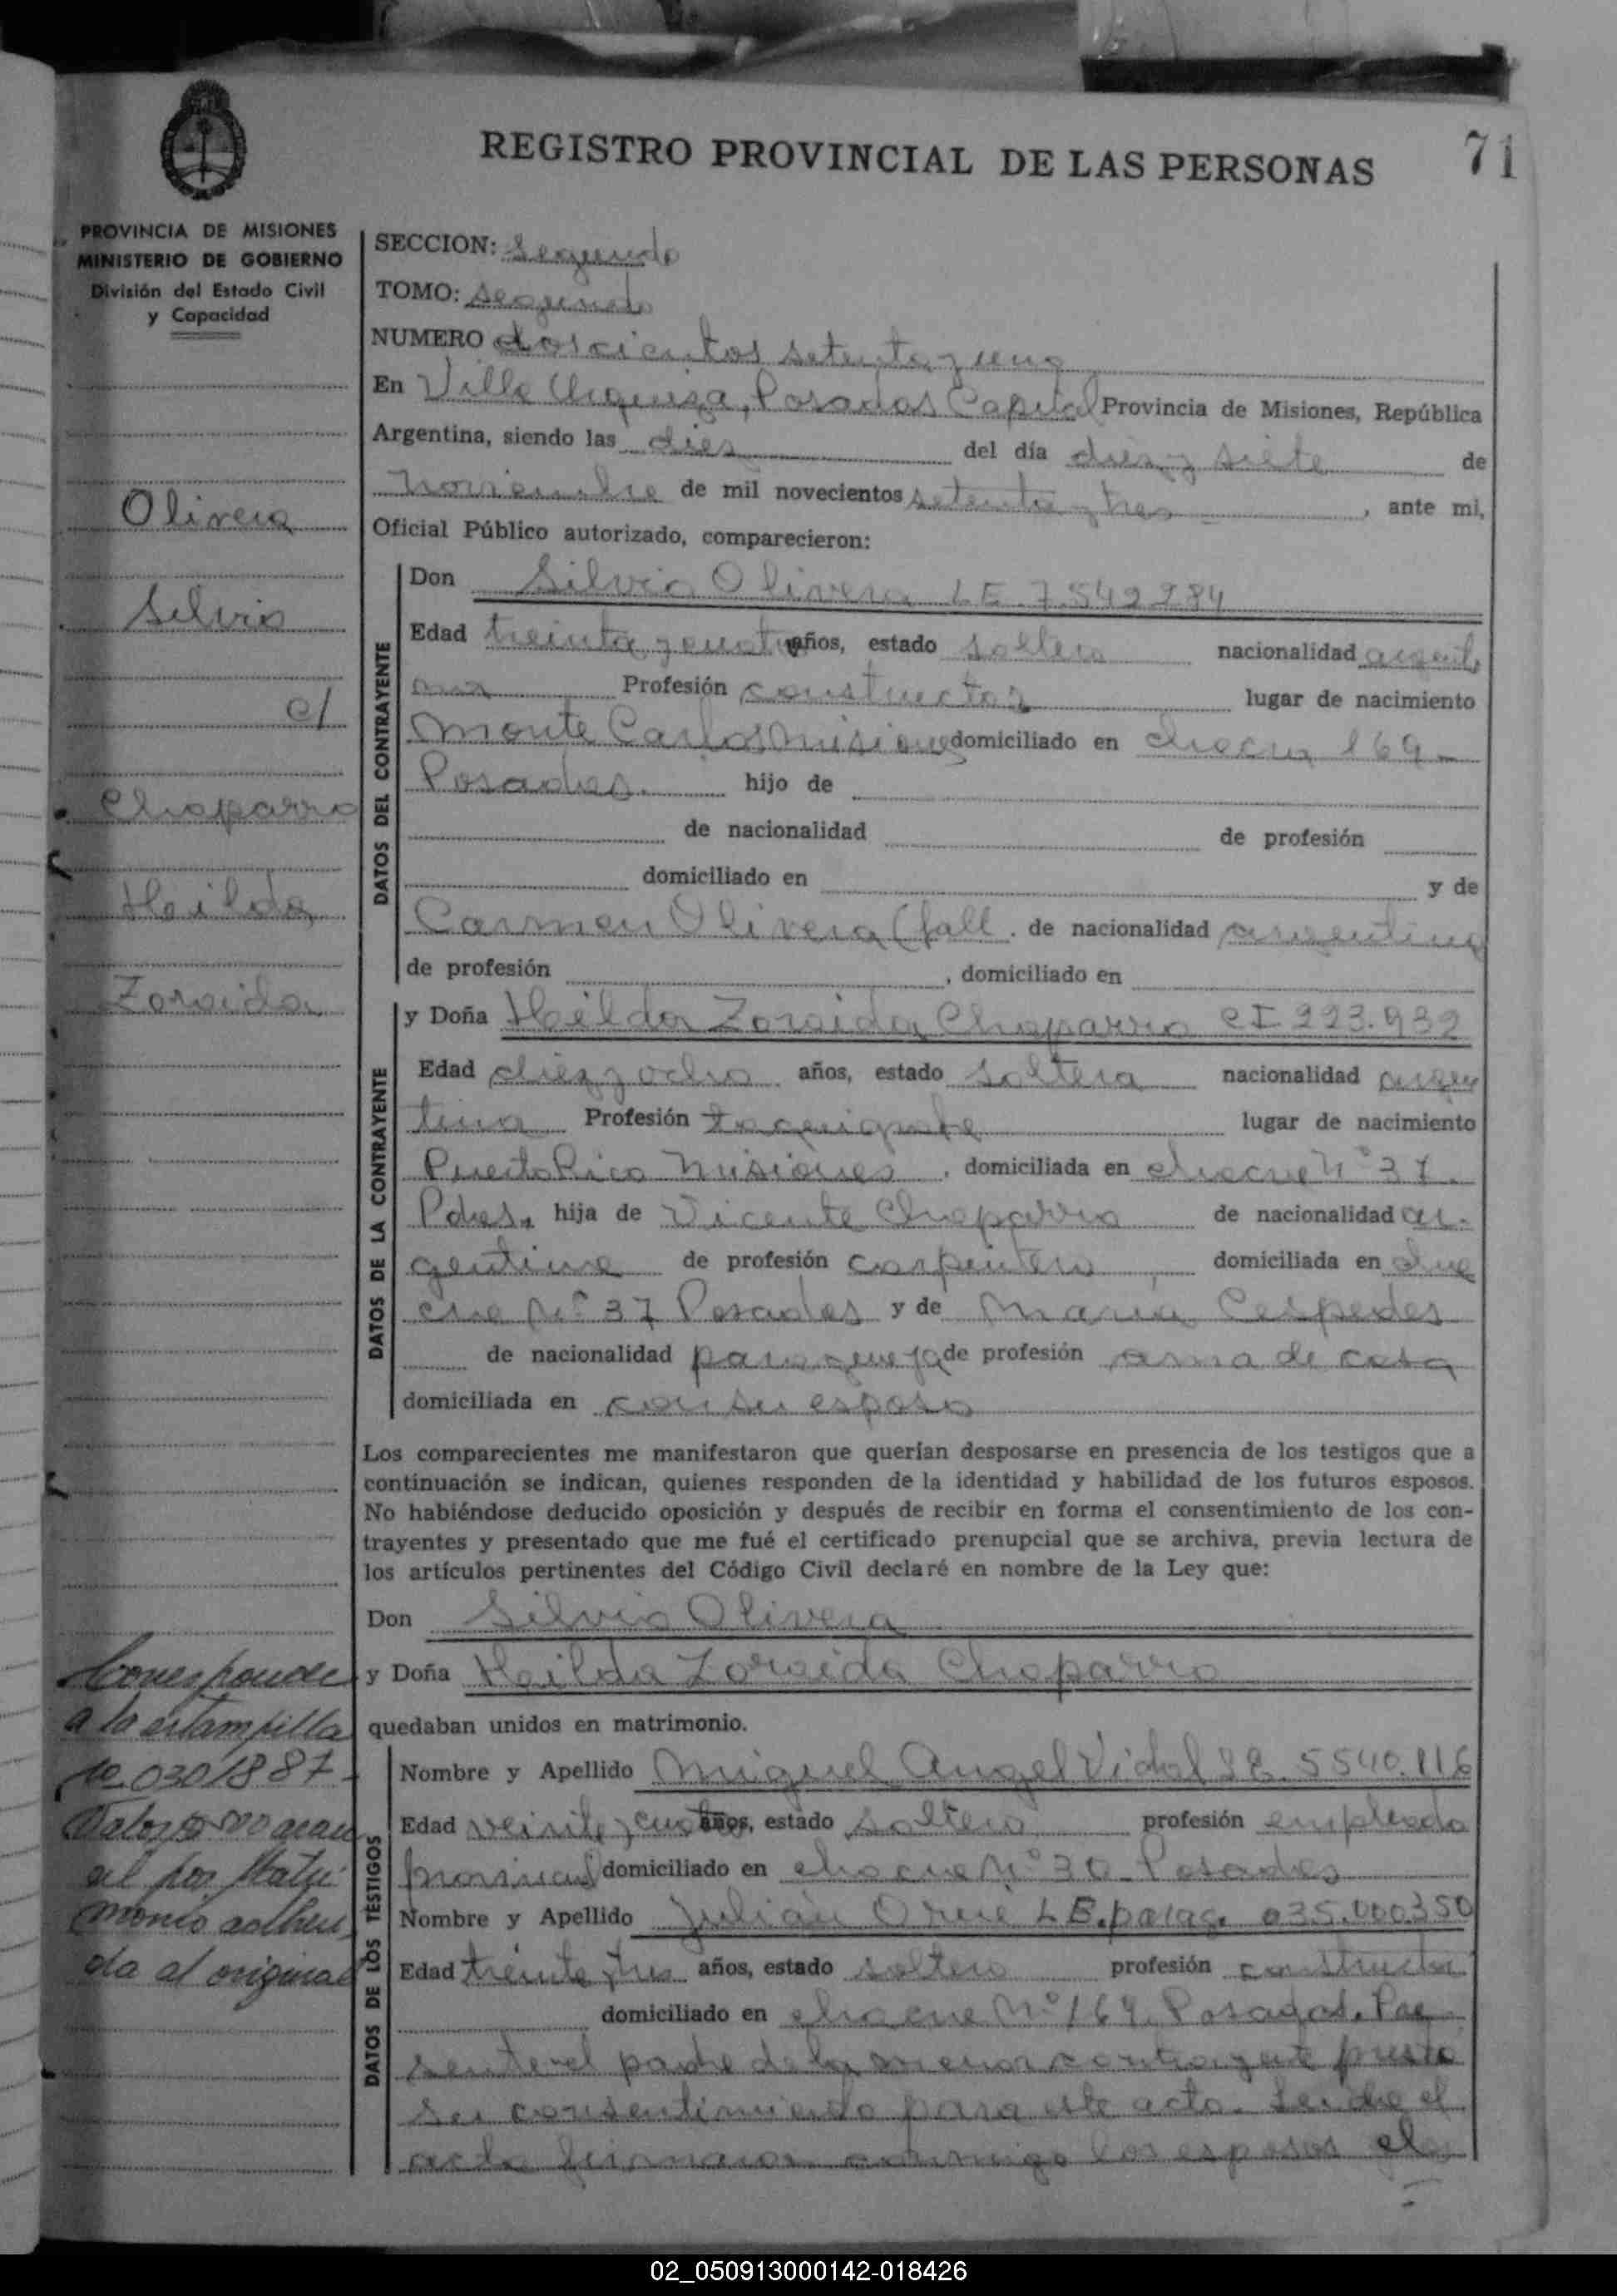 REGISTRO PROVINCIAL DE LAS PERSONAS
71
PROVINCIA DE MISIONES
MINISTERIO DE GOBIERNO
División del Estado Civil
y Capacidad
Olivera
Silvio
c/
Chaparro
Hilda
Zoraida
Corresponde
a la estampilla
030/887
Valor
por Matri
monio adheri
da al original
SECCION: Segundo
TOMO: segundo
NUMERO doscientos setenta y uno
En Villa Urquiza, Posadas Capital Provincia de Misiones, República
Argentina, siendo las diez del día diez y siete de
noviembre de mil novecientos setenta y tres , ante mi,
Oficial Público autorizado, comparecieron:
DATOS DEL CONTRAYENTE
Don Silvio Olivera L E. 7.542.284
Edad treinta y cuatro años, estado soltero nacionalidad argenti
no Profesión constructor lugar de nacimiento
Monte Carlos Misiones domiciliado en chacra 169
Posadas. hijo de
de nacionalidad de profesión
domiciliado en y de
Carmen Olivera (fall. de nacionalidad argentina
de profesión , domiciliado en
DATOS DE LA CONTRAYENTE
y Doña Hilda Zoraida Chaparro C I 223.932
Edad diez y ocho años, estado soltera nacionalidad argen
tina Profesión lugar de nacimiento
Puerto Rico Misiones , domiciliada en chacra N° 37
Pdas. hija de Vicente Chaparro de nacionalidad ar-
gentina de profesión carpintero domiciliada en cha
cra N° 37 Posadas y de Maria Cespedes
de nacionalidad paraguaya de profesión ama de casa
domiciliada en con su esposo
Los comparecientes me manifestaron que querían desposarse en presencia de los testigos que a
continuación se indican, quienes responden de la identidad y habilidad de los futuros esposos.
No habiéndose deducido oposición y después de recibir en forma el consentimiento de los con-
trayentes y presentado que me fué el certificado prenupcial que se archiva, previa lectura de
los artículos pertinentes del Código Civil declaré en nombre de la Ley que:
Don Silvio Olivera
y Doña Hilda Zoraida Chaparro
quedaban unidos en matrimonio.
DATOS DE LOS TESTIGOS
Nombre y Apellido Miguel Angel Vidal L E. 5540.116
Edad veinte y cuatro años, estado soltero profesión empleado
provincial domiciliado en chacra N° 30 Posadas
Nombre y Apellido Julián Orué L E. parag. 035.000350
Edad treinta y tres años, estado soltero profesión constructor
domiciliado en chacra N° 169 Posadas. Pre
sente el padre de la menor contrayente presta
su consentimiento para este acto. Leida el
acta firmaron conmigo los esposos el
02_050913000142-018426